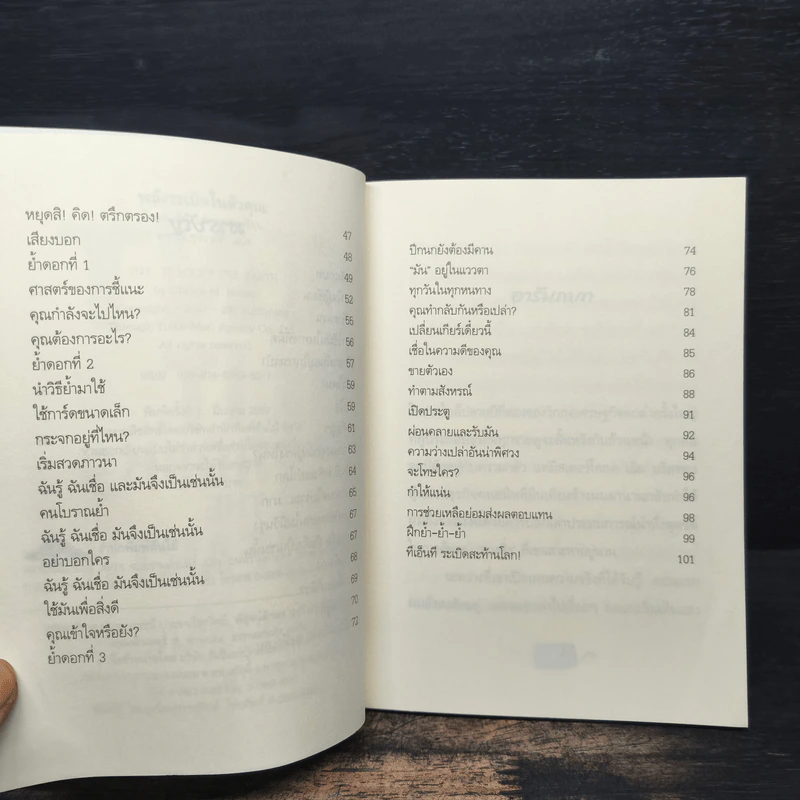 หยุดสิ! คิด! ตรึกตรอง! 47
เสียงบอก 48
ย้ำดอกที่ 1 49
ศาสตร์ของการชี้แนะ 52
คุณกำลังจะไปไหน? 55
คุณต้องการอะไร? 56
ย้ำดอกที่ 2 57
นำวิธีย้ำมาใช้ 59
ใช้การ์ดขนาดเล็ก 59
กระจกอยู่ที่ไหน? 61
เริ่มสวดภาวนา 63
ฉันรู้ ฉันเชื่อ และมันจึงเป็นเช่นนั้น 64
คนโบราณย้ำ 65
ฉันรู้ ฉันเชื่อ มันจึงเป็นเช่นนั้น 67
อย่าบอกใคร 67
ฉันรู้ ฉันเชื่อ มันจึงเป็นเช่นนั้น 68
ใช้มันเพื่อสิ่งดี 69
คุณเข้าใจหรือยัง? 70
ย้ำดอกที่ 3 72
ปีกนกยังต้องมีคาน 74
“มัน” อยู่ในแววตา 76
ทุกวันในทุกหนทาง 78
คุณทำกลับกันหรือเปล่า? 81
เปลี่ยนเกียร์เดี๋ยวนี้ 84
เชื่อในความดีของคุณ 85
ขายตัวเอง 86
ทำตามสังหรณ์ 88
เปิดประตู 91
ผ่อนคลายและรับมัน 92
ความว่างเปล่าอันน่าพิศวง 94
จะโทษใคร? 96
กำให้แน่น 96
การช่วยเหลือย่อมส่งผลตอบแทน 98
ฝึกย้ำ-ย้ำ-ย้ำ 99
ทีเอ็นที ระเบิดสะท้านโลก! 101